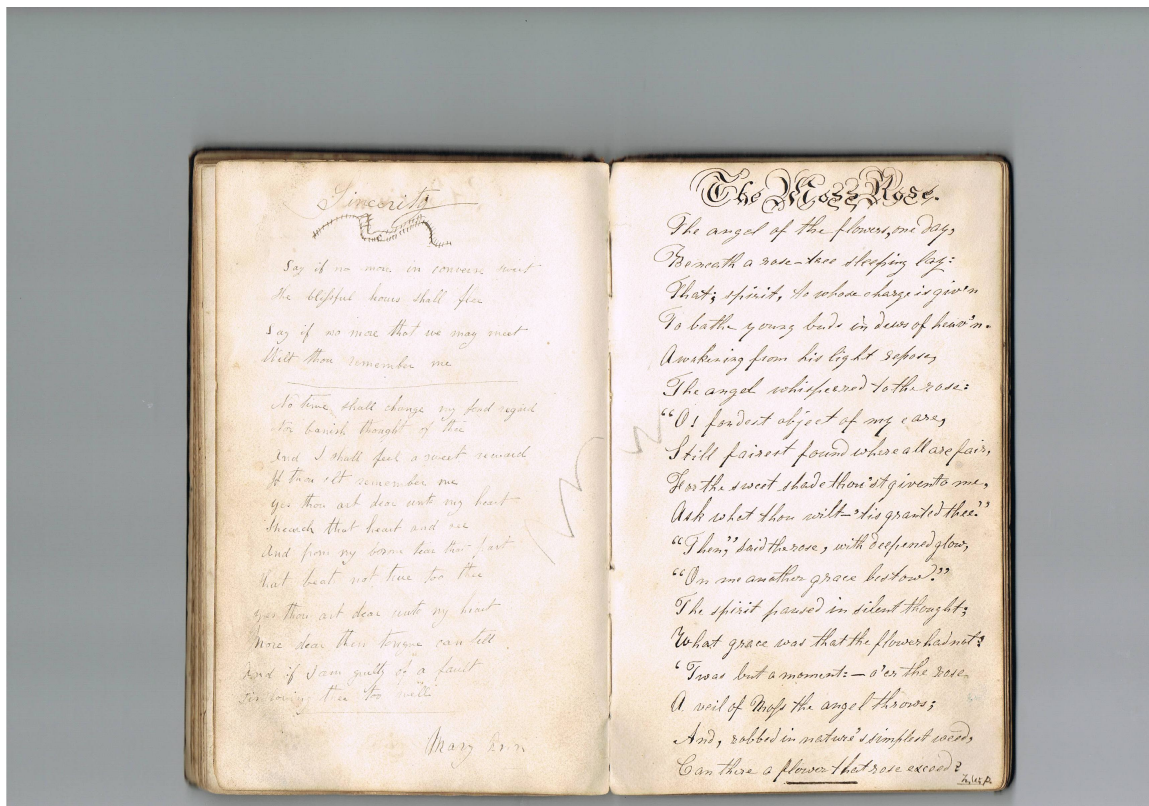 Sincerity
Say if no more in converse sweet
The blissful hours shall flee
Say if no more that we may meet
Wilt thou remember me
No time shall change my fond regard
Nor banish thought of thee
And I shall feel a sweet reward
If thou'lt remember me
yes thou art dear unto my heart
Shearch that heart and see
And from my bosom tear that part
that beat not true too thee
yes thou art dear unto my heart
More dear then tongue can tell
And if I am guilty of a fault
Tis loving thee to well
Mary Ann
The Moss Rose.
The angel of the flowers, one day,
Beneath a rose-tree sleeping lay:
That; spirit, to whose charge is giv'n
To bathe young buds in dews of heav'n.
Awakening from his light repose,
The angel whisperred to the rose:
"O! fondest object of my care,
Still fairest found where all are fair,
For the sweet shade thou'st given to me,
Ask what thou wilt—'tis granted thee."
"Then," said the rose, with deepened glow,
"On me another grace bestow."
The spirit paused in silent thought;
What grace was that the flower had not?
'Twas but a moment:—o'er the rose
A veil of Moss the angel throws;
And, robbed in nature's simplest weed,
Can there a flower that rose exceed?